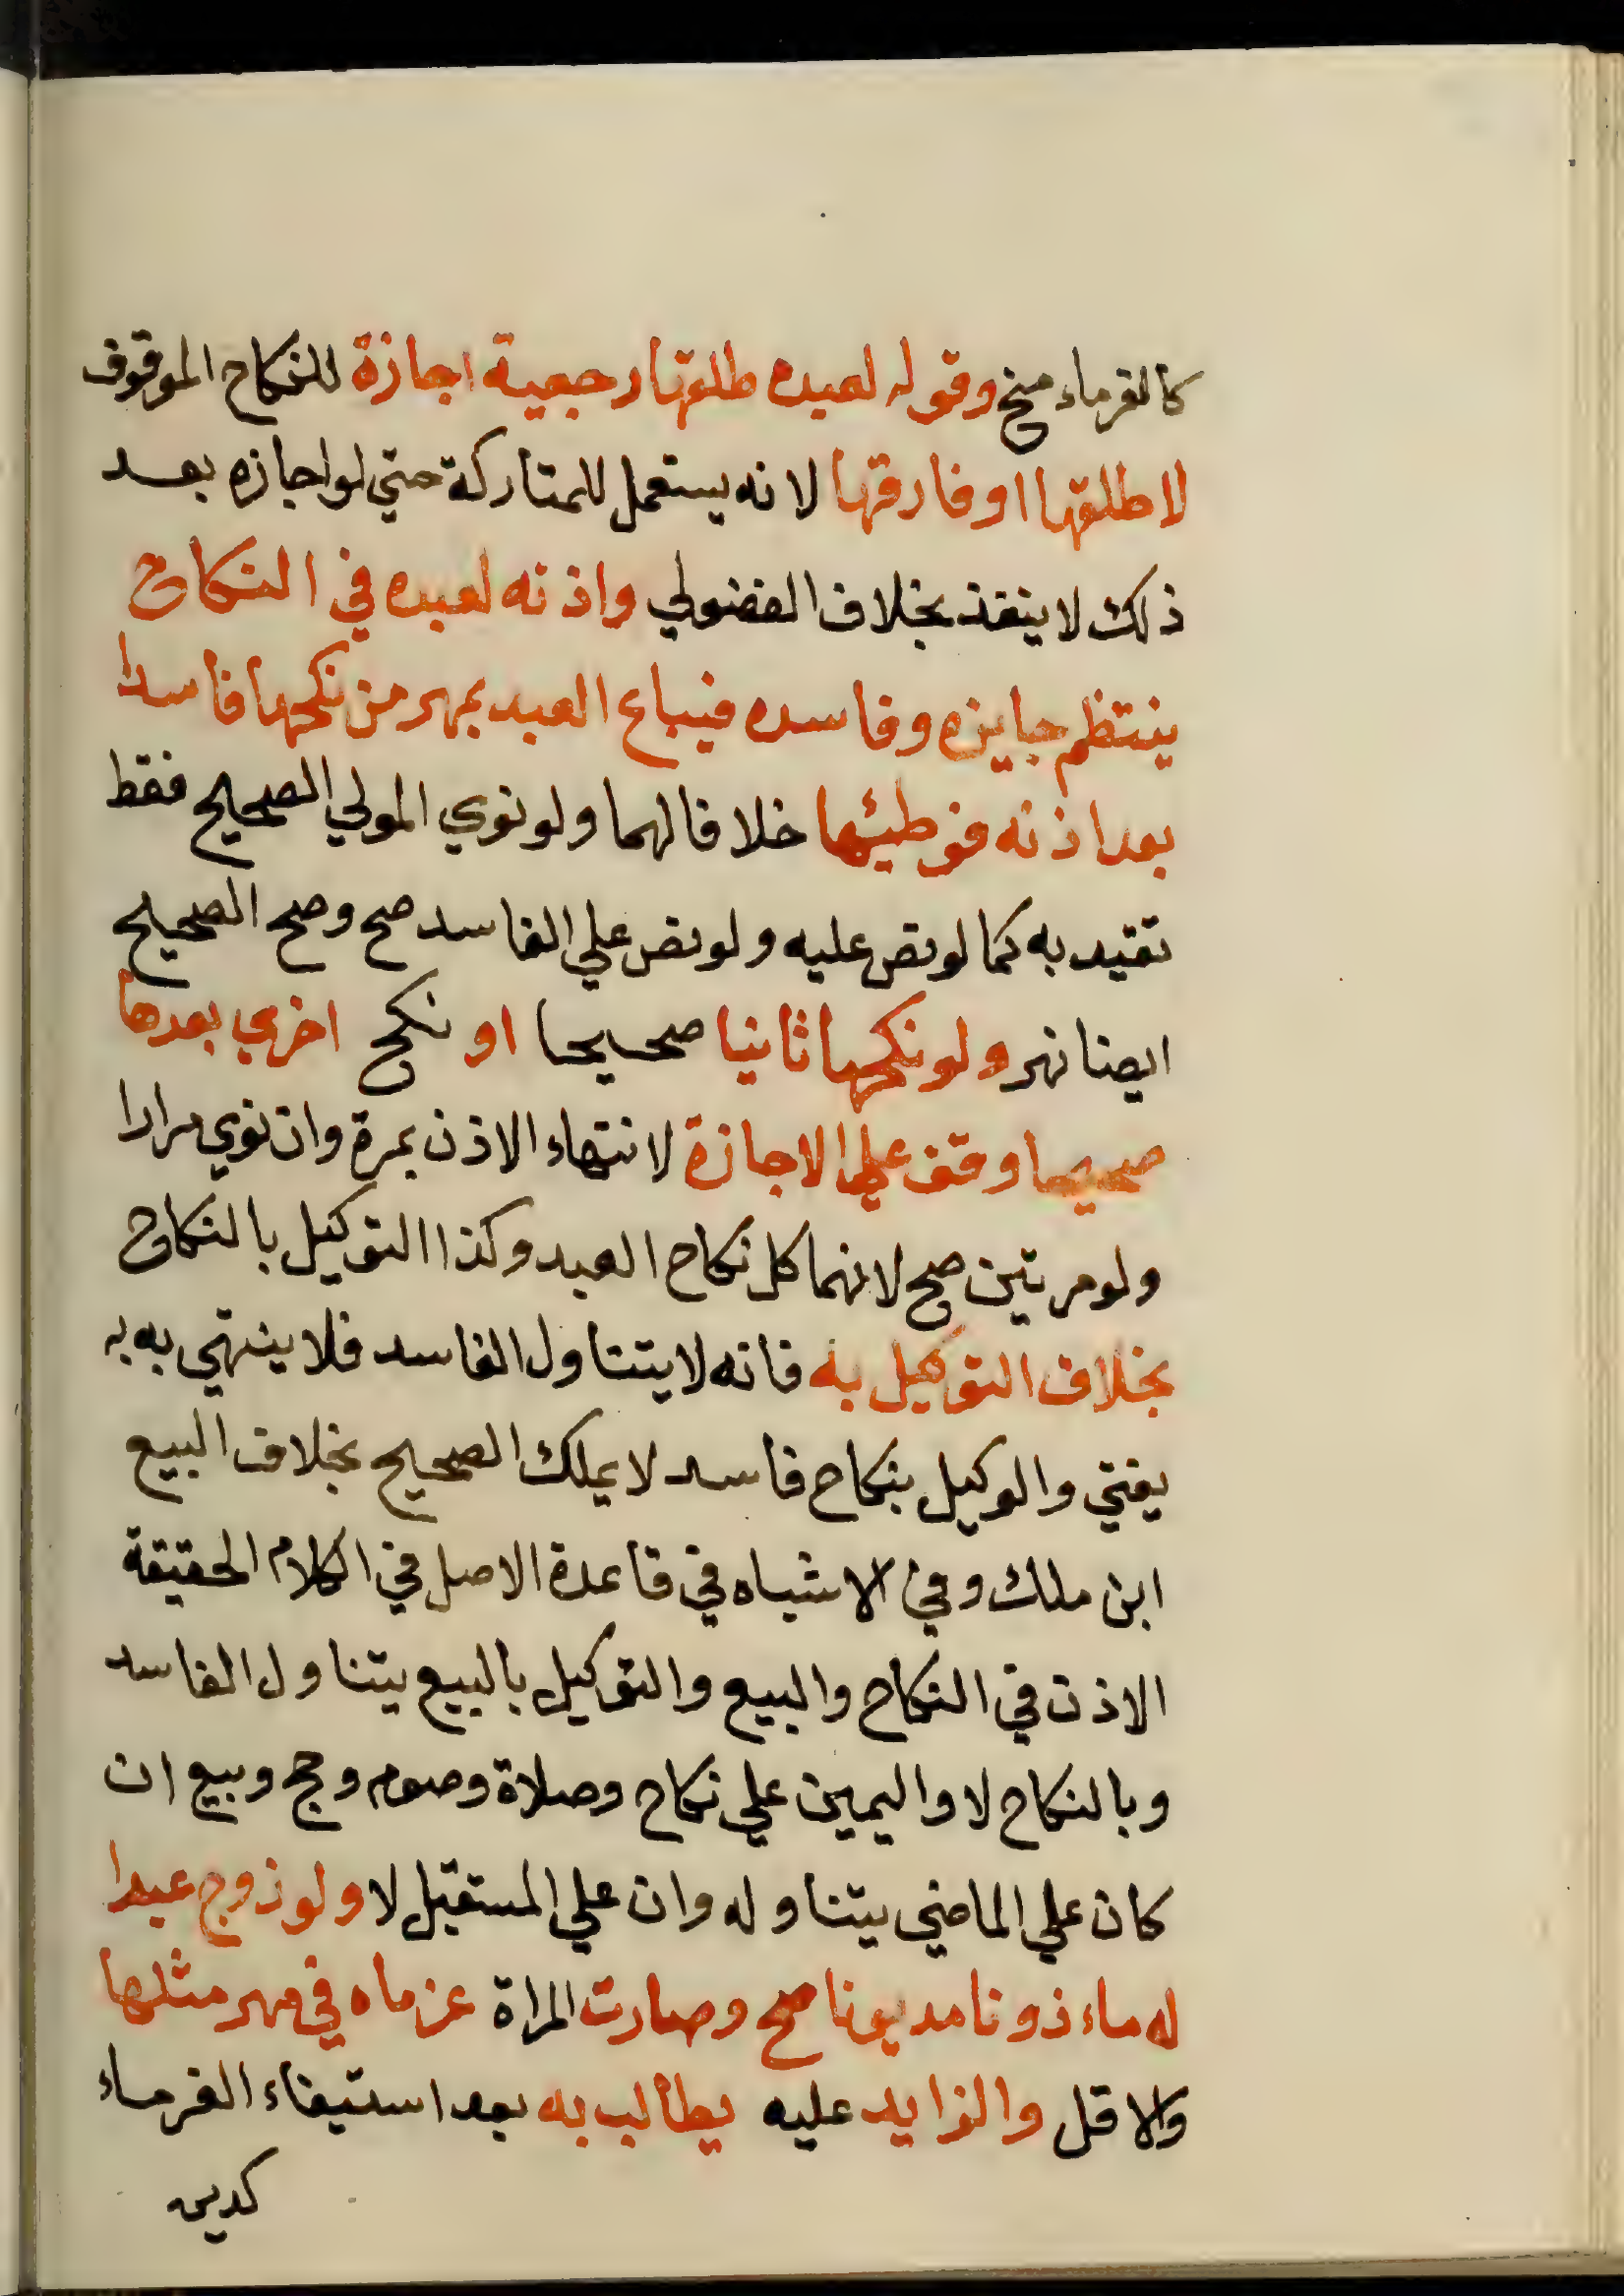 كالغرماء منح وقوله لعبده طلقها رجعية اجازة للنكاح الموقوف
لا طلقها او فارقها لانه يستعمل للمتاركة حتي لو اجازه بعد
ذلك لا ينفذ بخلاف الفضولي واذنه لعبده في النكاح
ينتظم جايزه وفاسده فيباع العبد بمهر من نكحها فاسدا
بعد اذنه فوطئها خلافا لهما ولو نوي المولي الصحيح فقط
تقيد به كما لو نص عليه ولو نص علي الفاسد صح وصح الصحيح
ايضا نهر ولو نكحها ثانيا صحيحا او نكح اخري بعدها
صحيحا وقف علي الاجازة لانتهاء الاذن بمرة وان نوي مرارا
ولو مرتين صح لانهما كل نكاح العبد وكذا التوكيل بالنكاح
بخلاف التوكيل به فانه لا يتناول الفاسد فلا ينتهي به به
يفتي والوكيل بنكاح فاسد لا يملك الصحيح بخلاف البيع
ابن ملك وفي الاشباه في قاعدة الاصل في الكلام الحقيقة
الاذن في النكاح والبيع والتوكيل بالبيع يتناول الفاسد
وبالنكاح لا واليمين علي نكاح وصلاة وصوم وحج وبيع ان
كان علي الماضي يتناوله وان علي المستقبل لا ولو زوج عبدا
له ماءذونا مديونا صح وصارت المراة غرماه في مهر مثلها
والاقل والزايد عليه يطالب به بعد استيفاء الغرماء
كدين